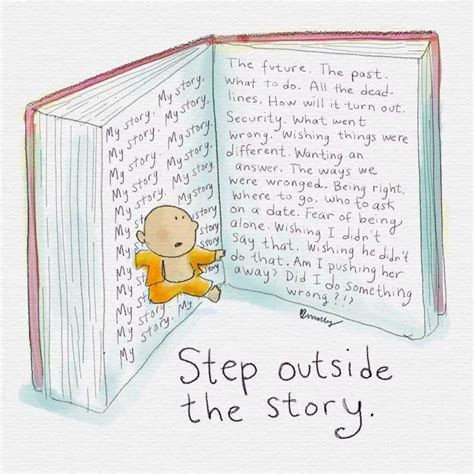 My story. My story.
My story. My story,
My story. My story.
My story. My story.
My story. My story.
My story. My story
My story
My story
My story
My st
My st
My story.
My story. My
My story.
The future. The past.
what to do. All the dead-
lines. How will it turn out.
Security. What went
wrong. Wishing things were
different. Wanting an
answer. The ways we
were wronged. Being right.
where to go. who to ask
on a date. Fear of being
alone. Wishing I didn't
say that. Wishing he didn't
do that. Am I pushing her
away? Did I do something
wrong?!?
Bmolly
Step outside
the story.